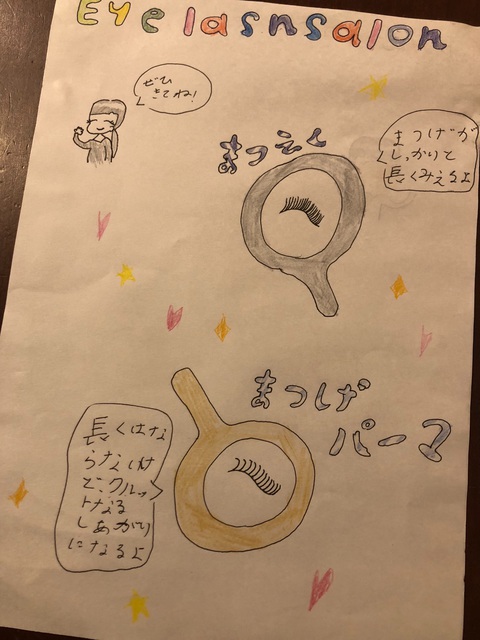 Eyelashsalon
ぜひ
きてね!
まつえく
まつげが
しっかりと
長くみえるよ
まつげ
パーマ
長くはな
らないけ
どクルッ
トなる
しあがり
になるよ